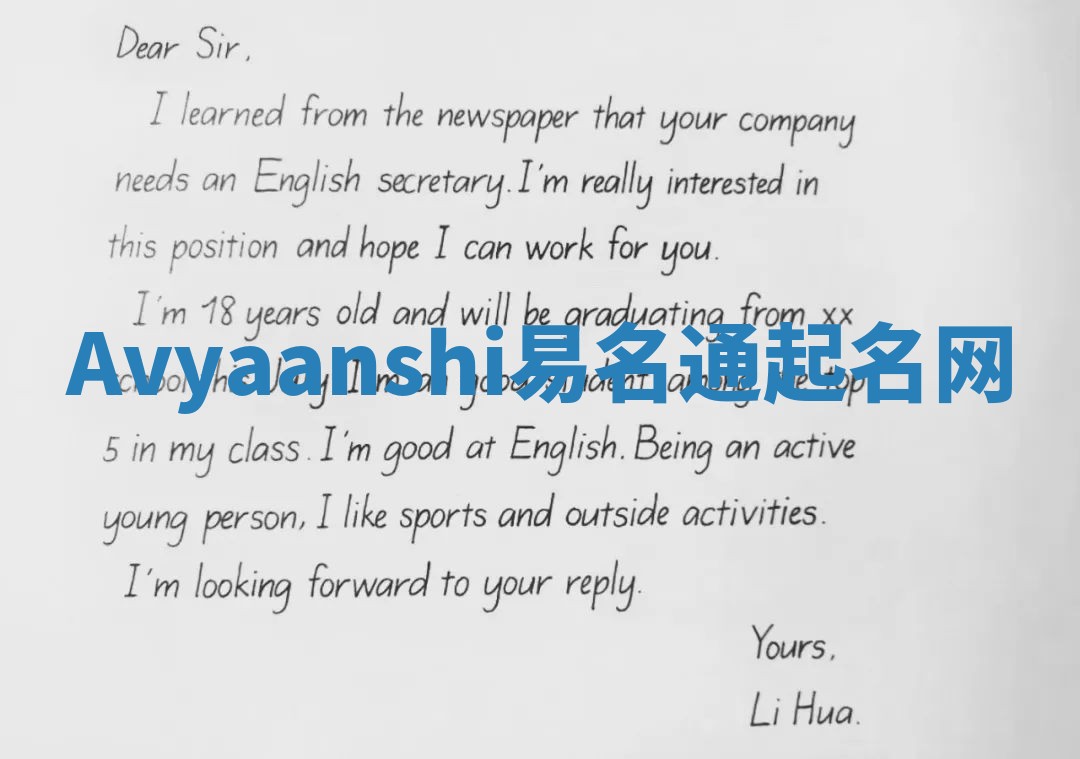 Dear Sir,
I learned from the newspaper that your company
needs an English secretary. I'm really interested in
this position and hope I can work for you.
I'm 18 years old and will be graduating from xx
Avyaanshi易名通起名网
school this July. I'm a good student among the top
5 in my class. I'm good at English. Being an active
young person, I like sports and outside activities.
I'm looking forward to your reply.
Yours,
Li Hua.